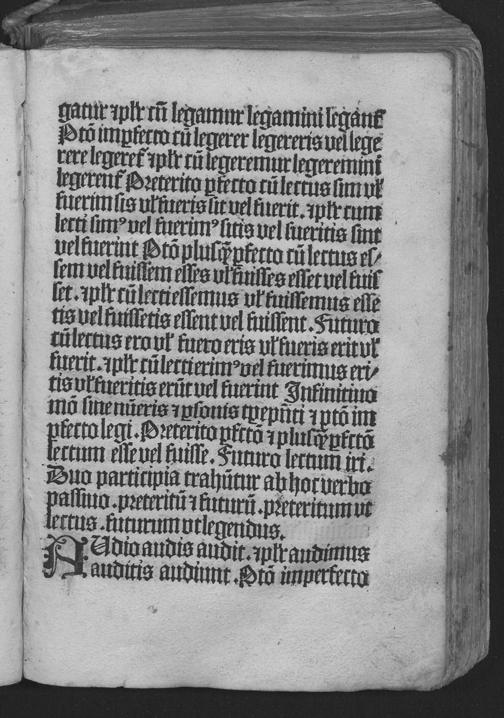 gatur ⁊ plꝛ cū legamur legamini legant᷑
Ptō impfecto cū legerer legereris vel lege
rere legeret᷑ ⁊ plꝛ cū legeremur legeremini
legerent᷑ Preterito ꝑfecto cū lectus sim vl̓
fuerim sis vl̓ fueris sit vel fuerit. ⁊ plꝛ cum
lecti simꝰ vel fuerimꝰ sitis vel fueritis sint
vel fuerint Ptō plusq̄ꝑfecto cū lectus es/
sem vel fuissem esses vl̓ fuisses esset vel fuis
set. ⁊ plꝛ cū lecti essemus vl̓ fuissemus esse
tis vel fuissetis essent vel fuissent. Futuro
cū lectus ero vl̓ fuero eris vl̓ fueris erit vl̓
fuerit. ⁊ plꝛ cū lecti erimꝰ vel fuerimus eri/
tis vl̓ fueritis erūt vel fuerint Infinitiuo
mō sine nūeris ⁊ ꝑsonis tꝑe pn̄ti ⁊ ptō im
ꝑfecto legi. Preterito ꝑfctō ⁊ plusq̄ꝑfctō
lectum esse vel fuisse. Futuro lectum iri.
Duo participia trahūtur ab hoc verbo
passiuo. preteritū ⁊ futurū. preteritum vt
lectus. futurum vt legendus.
AUdio audis audit. ⁊ plꝛ audimus
auditis audiunt. Ptō imperfecto